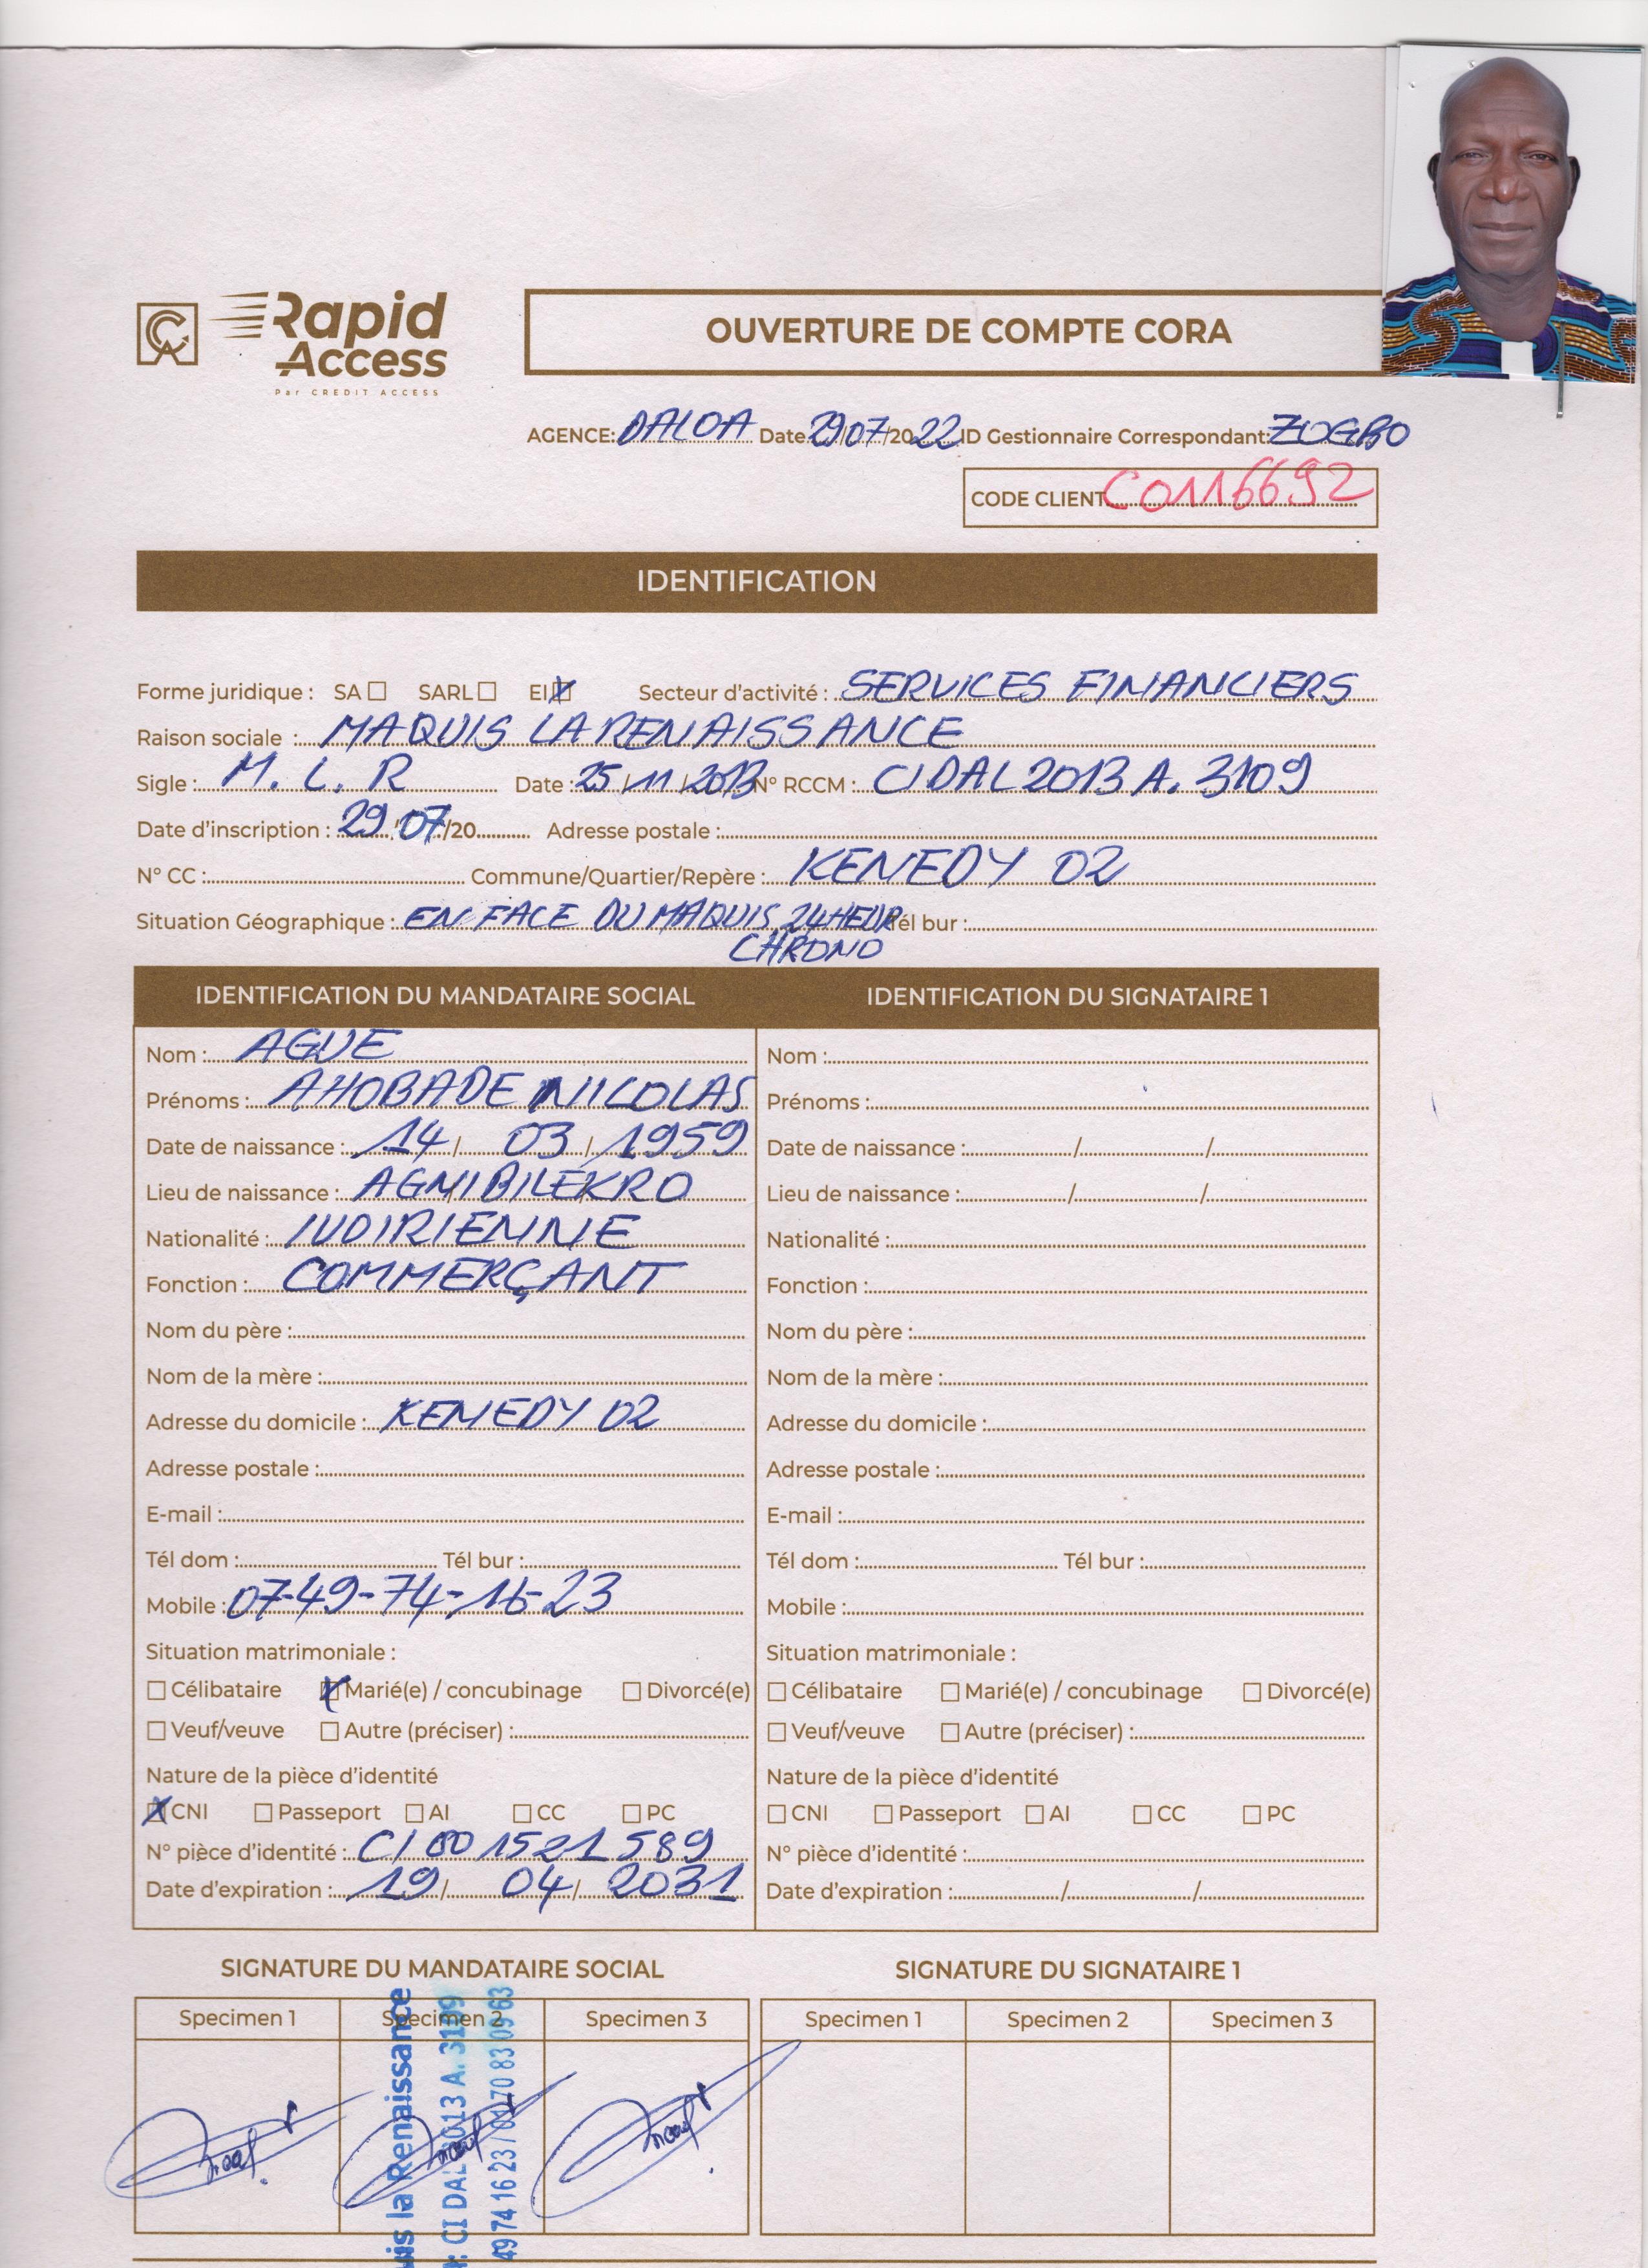 Rapid
Access
Par CREDIT ACCESS
OUVERTURE DE COMPTE CORA
AGENCE: DALOA Date 29/07/2022 ID Gestionnaire Correspondant: ZOGBO
CODE CLIENT C0116692
IDENTIFICATION
Forme juridique : SA ☐ SARL ☐ EI ☒ Secteur d'activité : SERVICES FINANCIERS
Raison sociale : MAQUIS LA RENAISSANCE
Sigle : M. L. R Date : 25/11/2013 N° RCCM : CI DAL 2013 A. 3109
Date d'inscription : 29/07/20 Adresse postale :
N° CC : Commune/Quartier/Repère : KENEDY 02
Situation Géographique : EN FACE DU MAQUIS 24HEUR Tél bur :
CHRONO
IDENTIFICATION DU MANDATAIRE SOCIAL
Nom : AGUE
Prénoms : AHOBADE NICOLAS
Date de naissance : 14/ 03/ 1959
Lieu de naissance : AGNIBILEKRO
Nationalité : IVOIRIENNE
Fonction : COMMERÇANT
Nom du père :
Nom de la mère :
Adresse du domicile : KENEDY 02
Adresse postale :
E-mail :
Tél dom : Tél bur :
Mobile : 07-49-74-16-23
Situation matrimoniale :
☐ Célibataire ☒ Marié(e) / concubinage ☐ Divorcé(e)
☐ Veuf/veuve ☐ Autre (préciser) :
Nature de la pièce d'identité
☒ CNI ☐ Passeport ☐ AI ☐ CC ☐ PC
N° pièce d'identité : CI 001521589
Date d'expiration : 19/ 04/ 2031
IDENTIFICATION DU SIGNATAIRE 1
Nom :
Prénoms :
Date de naissance : / /
Lieu de naissance : / /
Nationalité :
Fonction :
Nom du père :
Nom de la mère :
Adresse du domicile :
Adresse postale :
E-mail :
Tél dom : Tél bur :
Mobile :
Situation matrimoniale :
☐ Célibataire ☐ Marié(e) / concubinage ☐ Divorcé(e)
☐ Veuf/veuve ☐ Autre (préciser) :
Nature de la pièce d'identité
☐ CNI ☐ Passeport ☐ AI ☐ CC ☐ PC
N° pièce d'identité :
Date d'expiration : / /
SIGNATURE DU MANDATAIRE SOCIAL
Specimen 1 Specimen 2 Specimen 3
la Renaissance
CI DAL 2013 A. 3109
49 74 16 23 / 01 70 83 09 63
SIGNATURE DU SIGNATAIRE 1
Specimen 1 Specimen 2 Specimen 3